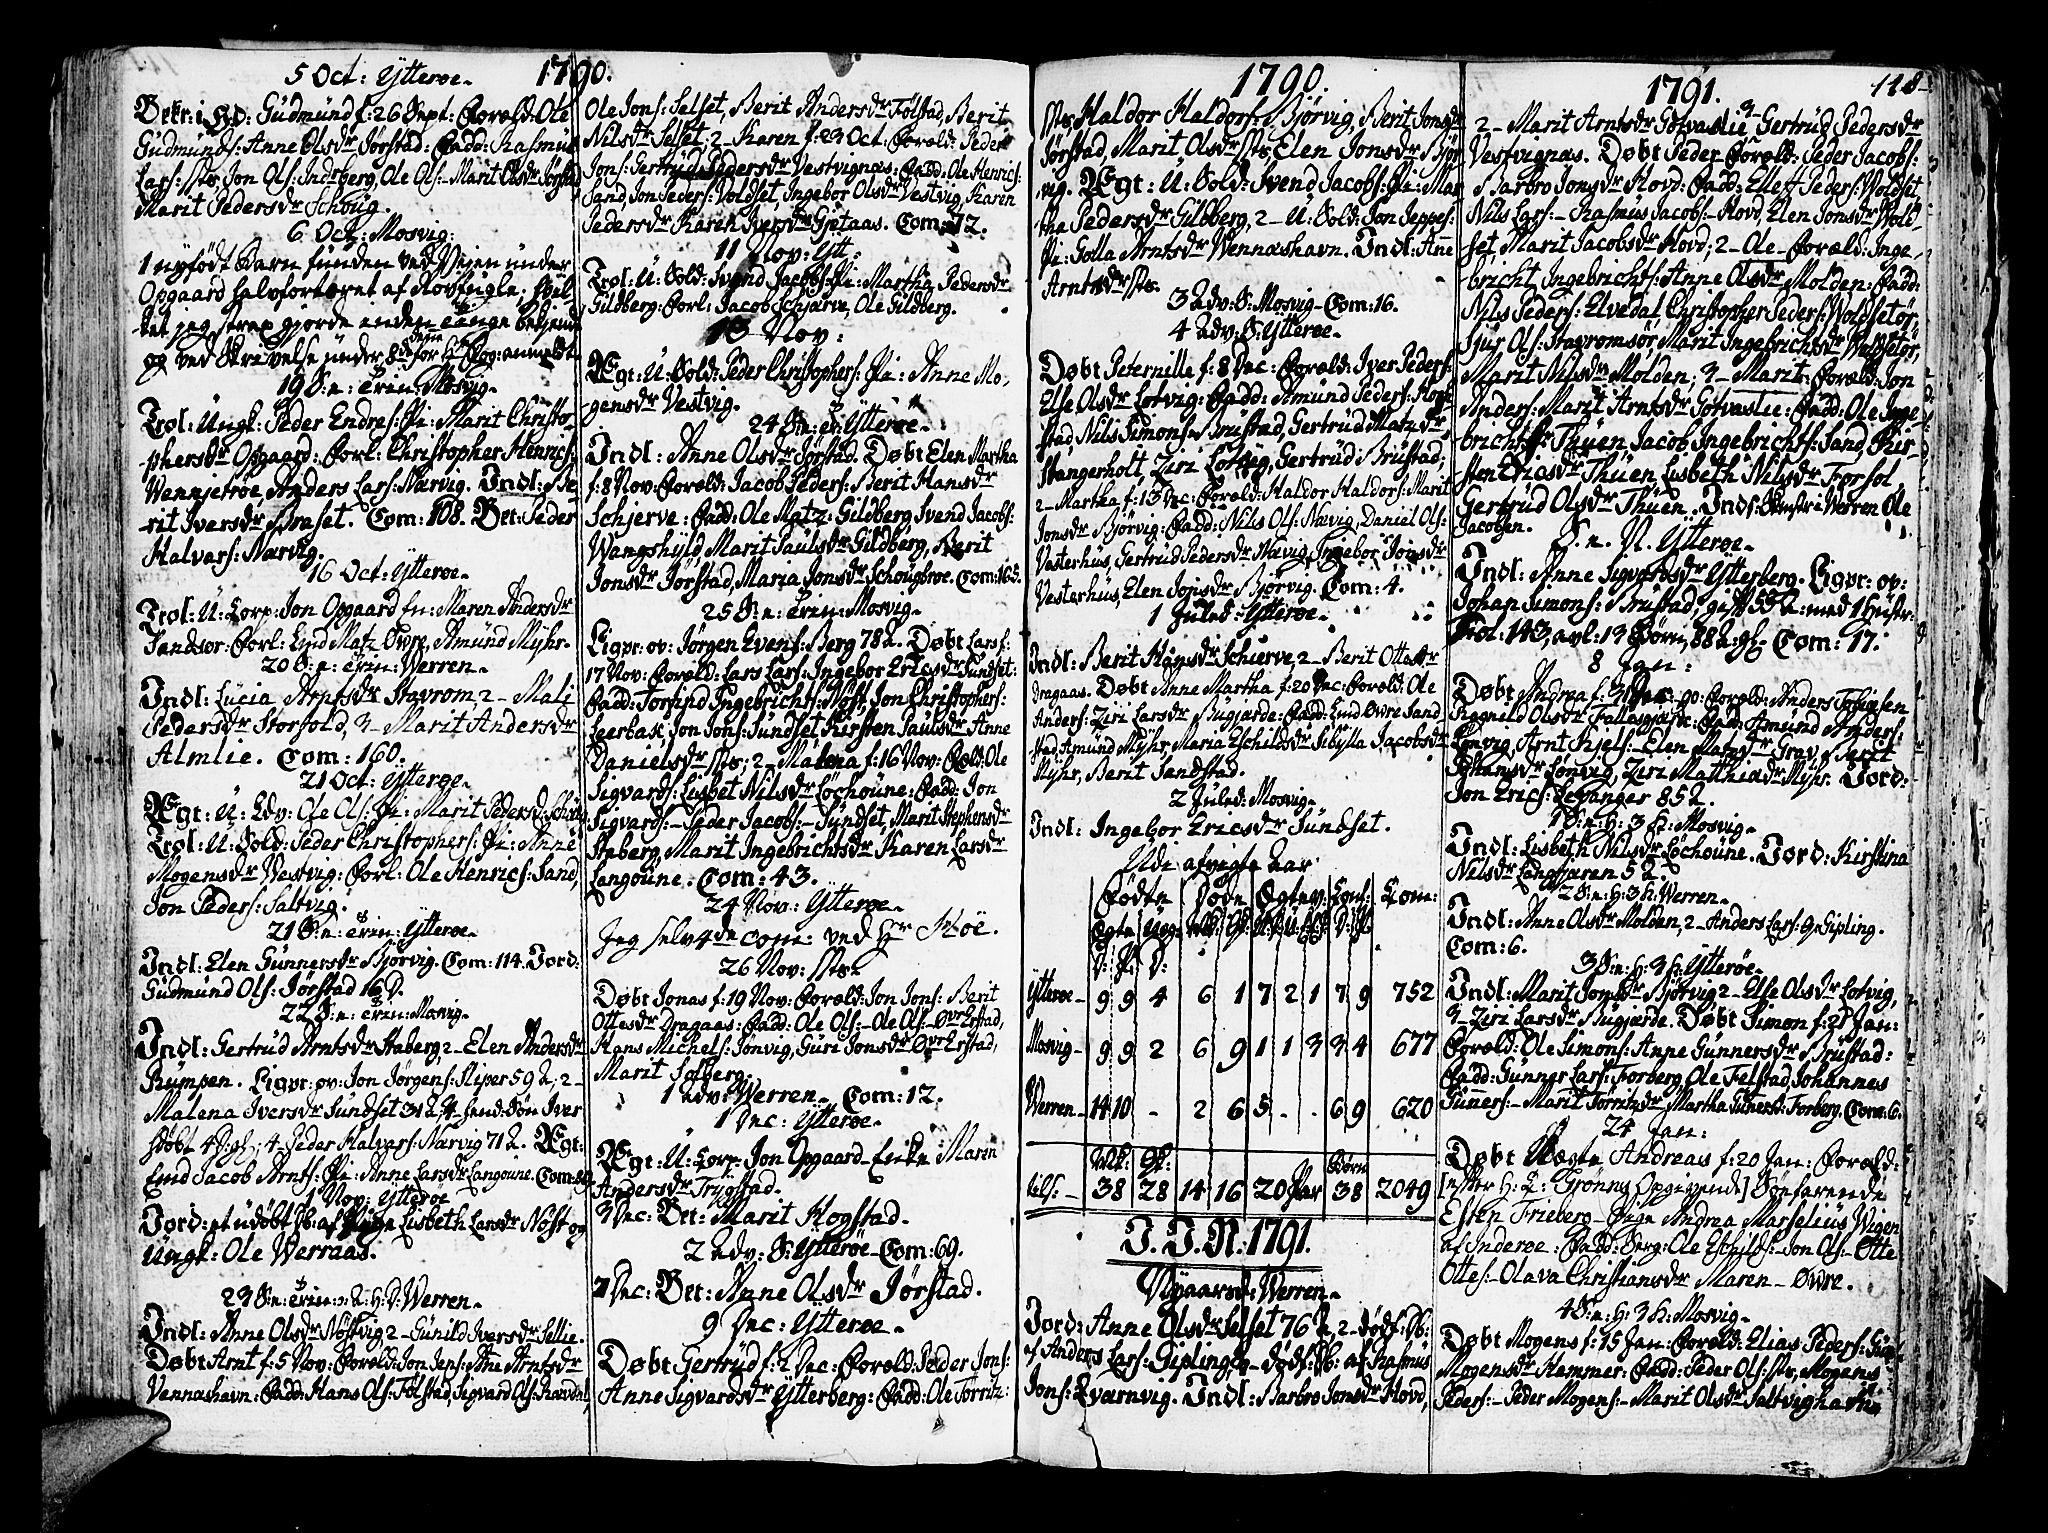 1790.
5 Oct: Ytterøe.
Bekr: i HD: Gudmund f: 26 Sept: Foræld: Ole
Gudmunds: Anne Olsdr Jørstad: Fadd: Rasmus
Lars: sts, Jon Ols: Inderberg, Ole Ols: Marit Olsdr Jørstad
Marit Pedersdr Schoug.
6 Oct: Mosvig:
1 nyfødt Barn funden ved Veien under
Opgaard halvfortæret af Rovfugle, hvil
ket jeg strax gjorde enden
og ved Skrivelse under 8de for Hr Fog: anmeldt
19 S: e: Trin: Mosvig.
Trol: Ungk: Peder Endres: Pi: Marit Christo-
phersdr Opgaard: Forl: Christopher Henrics:
Wennjetrøe, Anders Lars: Nærvig. Indl: Be-
rit Iversdr Braset. Com: 108. Bet: Peder
Halvars: Nærvig.
16 Oct: Ytterøe.
Trol: U: Corp: Jon Opgaard En: Maren Andersdr
Sandsør: Forl: Lind Matz Øvre, Amund Myhr.
20 S: e: Trin: Werren.
Indl: Lucia Arntsdr Stavrom, 2 Mali
Pedersdr Storfold, 3 Marit Andersdr
Almlie. Com: 160.
21 Oct: Ytterøe.
Ægt: U: Edv: Ole Ols: Pi: Marit Pedersd: Schoug
Trol: U: Sold: Peder Christophers: Pi: Anne
Mogensdr Vestvig: Forl: Ole Henrics: Sand,
Jon Peders: Saltvig.
21 S: e: Trin: Ytterøe.
Indl: Elen Gunnersdr Bjørvig. Com: 114. Jord:
Gudmund Ols: Jørstad 16 D.
22 S: e: Trin: Mosvig.
Indl: Gertrud Arntsdr Staberg 2 Elen Andersdr
Rumpen. Ligpr: ov: Jon Jørgens: Sliper 59 A; 2
Malena Iversdr Sundset 31 A
døbt 4 D: gl; 4 Peder Halvars: Nærvig 71 A. Ægt:
Emd Jacob Arnts: Pi: Anne Larsdr Langoune. Com: 89
1 Nov: Ytterøe
Jord: et udøbt Pb: af Lisbeth Larsdr Nøst og
Ungk: Ole Werraas.
23 S: e: Trin: Werren.
Indl: Anne Olsdr Nøstvig 2 Gunild Iversdr Sellie.
Døbt Arnt f: 5 Nov: Foræld: Jon Jens: Ane Arntsdr
Vennashavn: Fadd: Hans Ols: Følstad, Sigvard Ols:
Ole Jons: Selset, Berit Andersdr Følstad, Berit
Nilsdr Selset; 2 Karen f: 23 Oct: Foræld: Peder
Jons: Gertrud Pedersdr Vestvignæs: Fadd: Ole Henrics:
Sand, Jon Peders: Voldset, Ingebor Olsdr Vestvig, Karen
Pedersdr Karen Iversdr Gjetaas. Com: 72.
11 Nov: Ytt:
Trol: U: Sold: Ivend Jacobs: Pi: Martha Pedersdr
Gildberg: Forl: Jacob Schjerve, Ole Gildberg.
18 Nov:
Ægt: U: Sold: Peder Christophers: Pi: Anne Mo-
gensdr Vestvig.
24 S: e: Tr: Ytterøe.
Indl: Anne Olsdr Jørstad. Døbt Elen Martha
f: 8 Nov: Foræld: Jacob Peders: Berit Hansdr
Schjerve: Fadd: Ole Matz: Gildberg Ivend Jacobs:
Wangshyld, Marit Paulsdr Gildberg, Berit
Jonsdr Jørstad, Maria Jonsdr Schougbroe. Com: 165.
25 S: e: Trin: Mosvig.
Ligpr: ov: Jørgen Evens: Berg 78 A. Døbt Lars f:
17 Nov: Foræld: Lars Lars: Ingebor Ericsdr Sundset:
Fadd: Torfind Ingebrichts: Nøst, Jon Christophers:
Leerbak, Jon Jons: Sundset Kirsten Paulsdr Anne
Danielsdr sts; 2 Malena f: 16 Nov: Forld: Ole
Sigvards: Lisbet Nilsdr Lochoune: Fadd: Jon
Sigvards: Peder Jacobs: Sundset, Marit Stephensdr
Staberg, Marit Ingebrichtsdr Karen Larsdr
Langoune. Com: 43.
24 Nov: Ytterøe.
Jeg selv 4de com: ved Hr Køe.
26 Nov: sts.
Døbt Jonas f: 19 Nov: Foræld: Jon Jons: Berit
Ottesdr Dragaas: Fadd: Ole Ols: Ole Ols: Øvr Erstad,
Hans Michels: Jønvig, Guri Jonsdr Øvr Erstad,
Marit Solberg.
1 Adv: Werren. Com: 12.
1 Dec: Ytterøe.
Ægt: U: Corp: Jon Opgaard Enke Maren
Andersdr Trygstad.
3 Dec: Bet: Marit Hogstad.
2 Adv: S: Ytterøe Com: 69.
7 Dec: Bet: Anne Olsdr Jørstad.
9 Dec: Ytterøe.
Døbt Gertrud f: 2 Dec: Foræld: Peder Jons:
Anne Sigvardsdr Ytterberg: Fadd: Ole Torris:
1790.
sts, Haldor Haldors: Bjørvig, Berit Jonsdr
Jørstad, Marit Olsdr sts, Elen Jonsdr Bjør
vig. Ægt: U: Sold: Ivend Jacobs: Pi: Mar
tha Pedersdr Gildberg, 2 U: Sold: Jon Jeppes:
Pi: Golla Arntsdr Wennashavn. Indl: Ane
Arntsdr sts.
3 Adv: S: Mosvig Com: 16.
4 Adv: S: Ytterøe.
Døbt Peternille f: 8 Dec: Foræld: Iver Peders:
Else Olsdr Lotvig: Fadd: Amund Peders: Hog
stad, Nils Simons: Brustad, Gertrud Matzdr
Wangerholt, Ziri Lotvig, Gertrud Brustad;
2 Martha f: 13 Dec: Foræld: Haldor Haldors: Marit
Jonsdr Bjørvig: Fadd: Nils Ols: Nævig, Daniel Ols:
Vesterhus, Gertrud Pedersdr Nævig, Ingebor Jonsdr
Vesterhus, Elen Jonsdr Bjørvig. Com: 4.
1 Juled: Ytterøe.
Indl: Berit Hansdr Schierve, 2 Berit Ottesdr
Dragaas. Døbt Anne Martha f: 20 Dec: Foræld: Ole
Anders: Ziri Larsdr Bugjerde: Fadd: Lind Øvre Sand
stad, Amund Myhr, Maria Eschildsdr Sibylla Jacobsdr
Myhr, Berit Sandstad.
2 Juled: Mosvig.
Indl: Ingebor Ericsdr Sundset.
Udi afvigte Aar
Fødte Døde Ægtev: Conf: Com:
Ægte Uæg: Mk: Qk:
D: P: D:
Ytterøe 9 9 4 6 1 7 2 1 7 9 752
Mosvig 9 9 2 6 9 1 1 3 3 4 677
Werren 14 10 - 2 6 5 - - 6 9 620
Mk: Qk: Børn
Tils: 38 28 14 16 20 Par 38 2049
I. J. N. 1791.
Nyaarsd: Werren.
Jord: Anne Olsdr Selset 76 A, 2 dødf: Pb:
af Anders Lars: Gipling, 3 dødf: Pb: af Rasmus
Jons: Qvarnvig. Indl: Barbro Jonsdr Hovd,
1791.
118
2 Marit Arntsdr Gotvaslie 3 Gertrud Pedersdr
Vestvignæs. Døbt Peder Foræld: Peder Jacobs:
Barbro Jonsdr Hovd: Fadd: Elleff Peders: Voldset
Nils Lars: Rasmus Jacobs: Hovd, Elen Jonsdr Vold
set, Marit Jacobsdr Hovd; 2 Ole Foræld: Inge-
bricht Ingebrichts: Anne Olsdr Molden: Fadd:
Nils Peders: Elvedal, Christopher Peders: Woldsetør,
Sjur Ols: Stavromsør, Marit Ingebrichtsdr Woldsetør,
Marit Nilsdr Molden; 3 Marit: Foræld: Jon
Anders: Marit Arntsdr Gotvaslie: Fadd: Ole Inge-
brichts: Thuen, Jacob Ingebrichts: Sand, Kir-
sten Ericsdr Thuen, Lisbeth Nilsdr Forsol,
Gertrud Olsdr Thuen. Inds: Skmstr i Werren Ole
Jacobsen.
S: e: N. Ytterøe.
Indl: Anne Sigvardsdr Ytterberg. Ligpr: ov:
Johan Simons: Brustad, gift 55 A: med 1 Hustr:
Trol: 143, avl: 13 Børn, 88 A: gl. Com: 17.
8 Jan:
Døbt Andrea f: 31 Dec: 90: Foræld: Anders Tobiæsen
Ragnild Olsdr Fallasgjerde: Fadd: Amund Anders:
Lønvig, Arnt Kjels: Elen Matzdr Grav, Berit
Johansdr Lønvig, Ziri Matthiædr Myhr. Jord:
Jon Erics: Levanger 85 A.
1 S: e: H: 3 K: Mosvig.
Indl: Lisbeth Nilsdr Lochoune. Jord: Kirstina
Nilsdr Langjaren 5 A.
2 S: e: H: 3 K: Werren.
Indl: Anne Olsdr Molden, 2 Anders Lars: Gipling.
Com: 6.
3 S: e: H: 3 K: Ytterøe.
Indl: Marit Jonsdr Bjørvig 2 Else Olsdr Lotvig,
3 Ziri Larsdr Bugjerde. Døbt Simon f: 21 Jan:
Foræld: Ole Simons: Anne Gunnersdr Brustad:
Fadd: Gunner Lars: Forberg, Ole Felstad, Johannes
Guners: Marit Torrisdr Martha Gunersd: Forberg. Com: 6.
24 Jan:
Døbt Uægte Andreas f: 20 Jan: Foræld:
[efter H: C: Grønns Opgivende] Søefarende
Esten Frieberg Pige Andrea Marselius Wigen
af Inderøe: Fadd: Serg: Ole Eschilds: Jon Ols: Otte
Ottes: Olava Christiansdr Maren Øvre.
4 S: e: H: 3 K: Mosvig.
Døbt Mogens f: 15 Jan: Foræld: Elias Peders:
Mogensdr Hammer: Fadd: Peder Ols: sts, Mogens
Peders: Peder Mogens: Marit Olsdr Saltvighavn